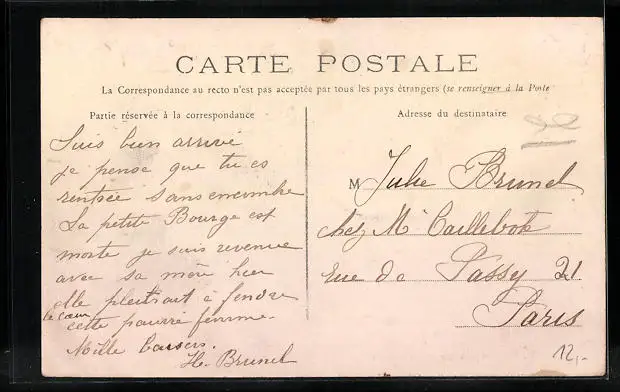 CARTE POSTALE
La Correspondance au recto n'est pas acceptée par tous les pays étrangers (se renseigner à la Poste
Partie réservée à la correspondance
Suis bien arrivé
je pense que tu es
rentrée sans encombre
La petite Bourge est
morte je suis revenue
avec sa mère hier
elle pleurait à fendre
le cœur cette pauvre femme.
Mille baisers.
H. Brunel
Adresse du destinataire
M Julie Brunel
chez Mr Caillebotte
rue de Passy 21
Paris
12,-